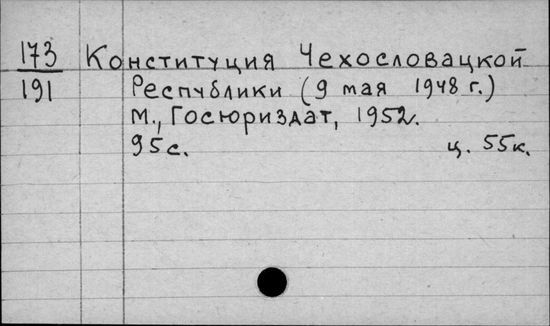 173 Конституция Чехословацкой
191 Республики (9 мая 1948 г.)
М., Госюриздат, 1952.
95с. ц. 55к.